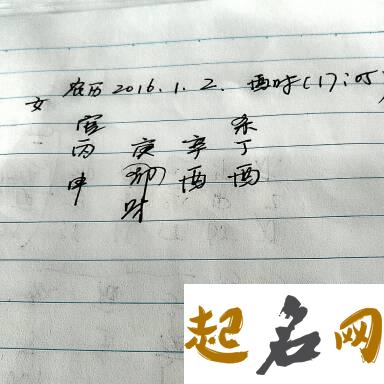 女 农历 2016.1.2. 酉时(17:05)
官 杀
丙 庚 辛 丁
申 酉 酉
财
起名网